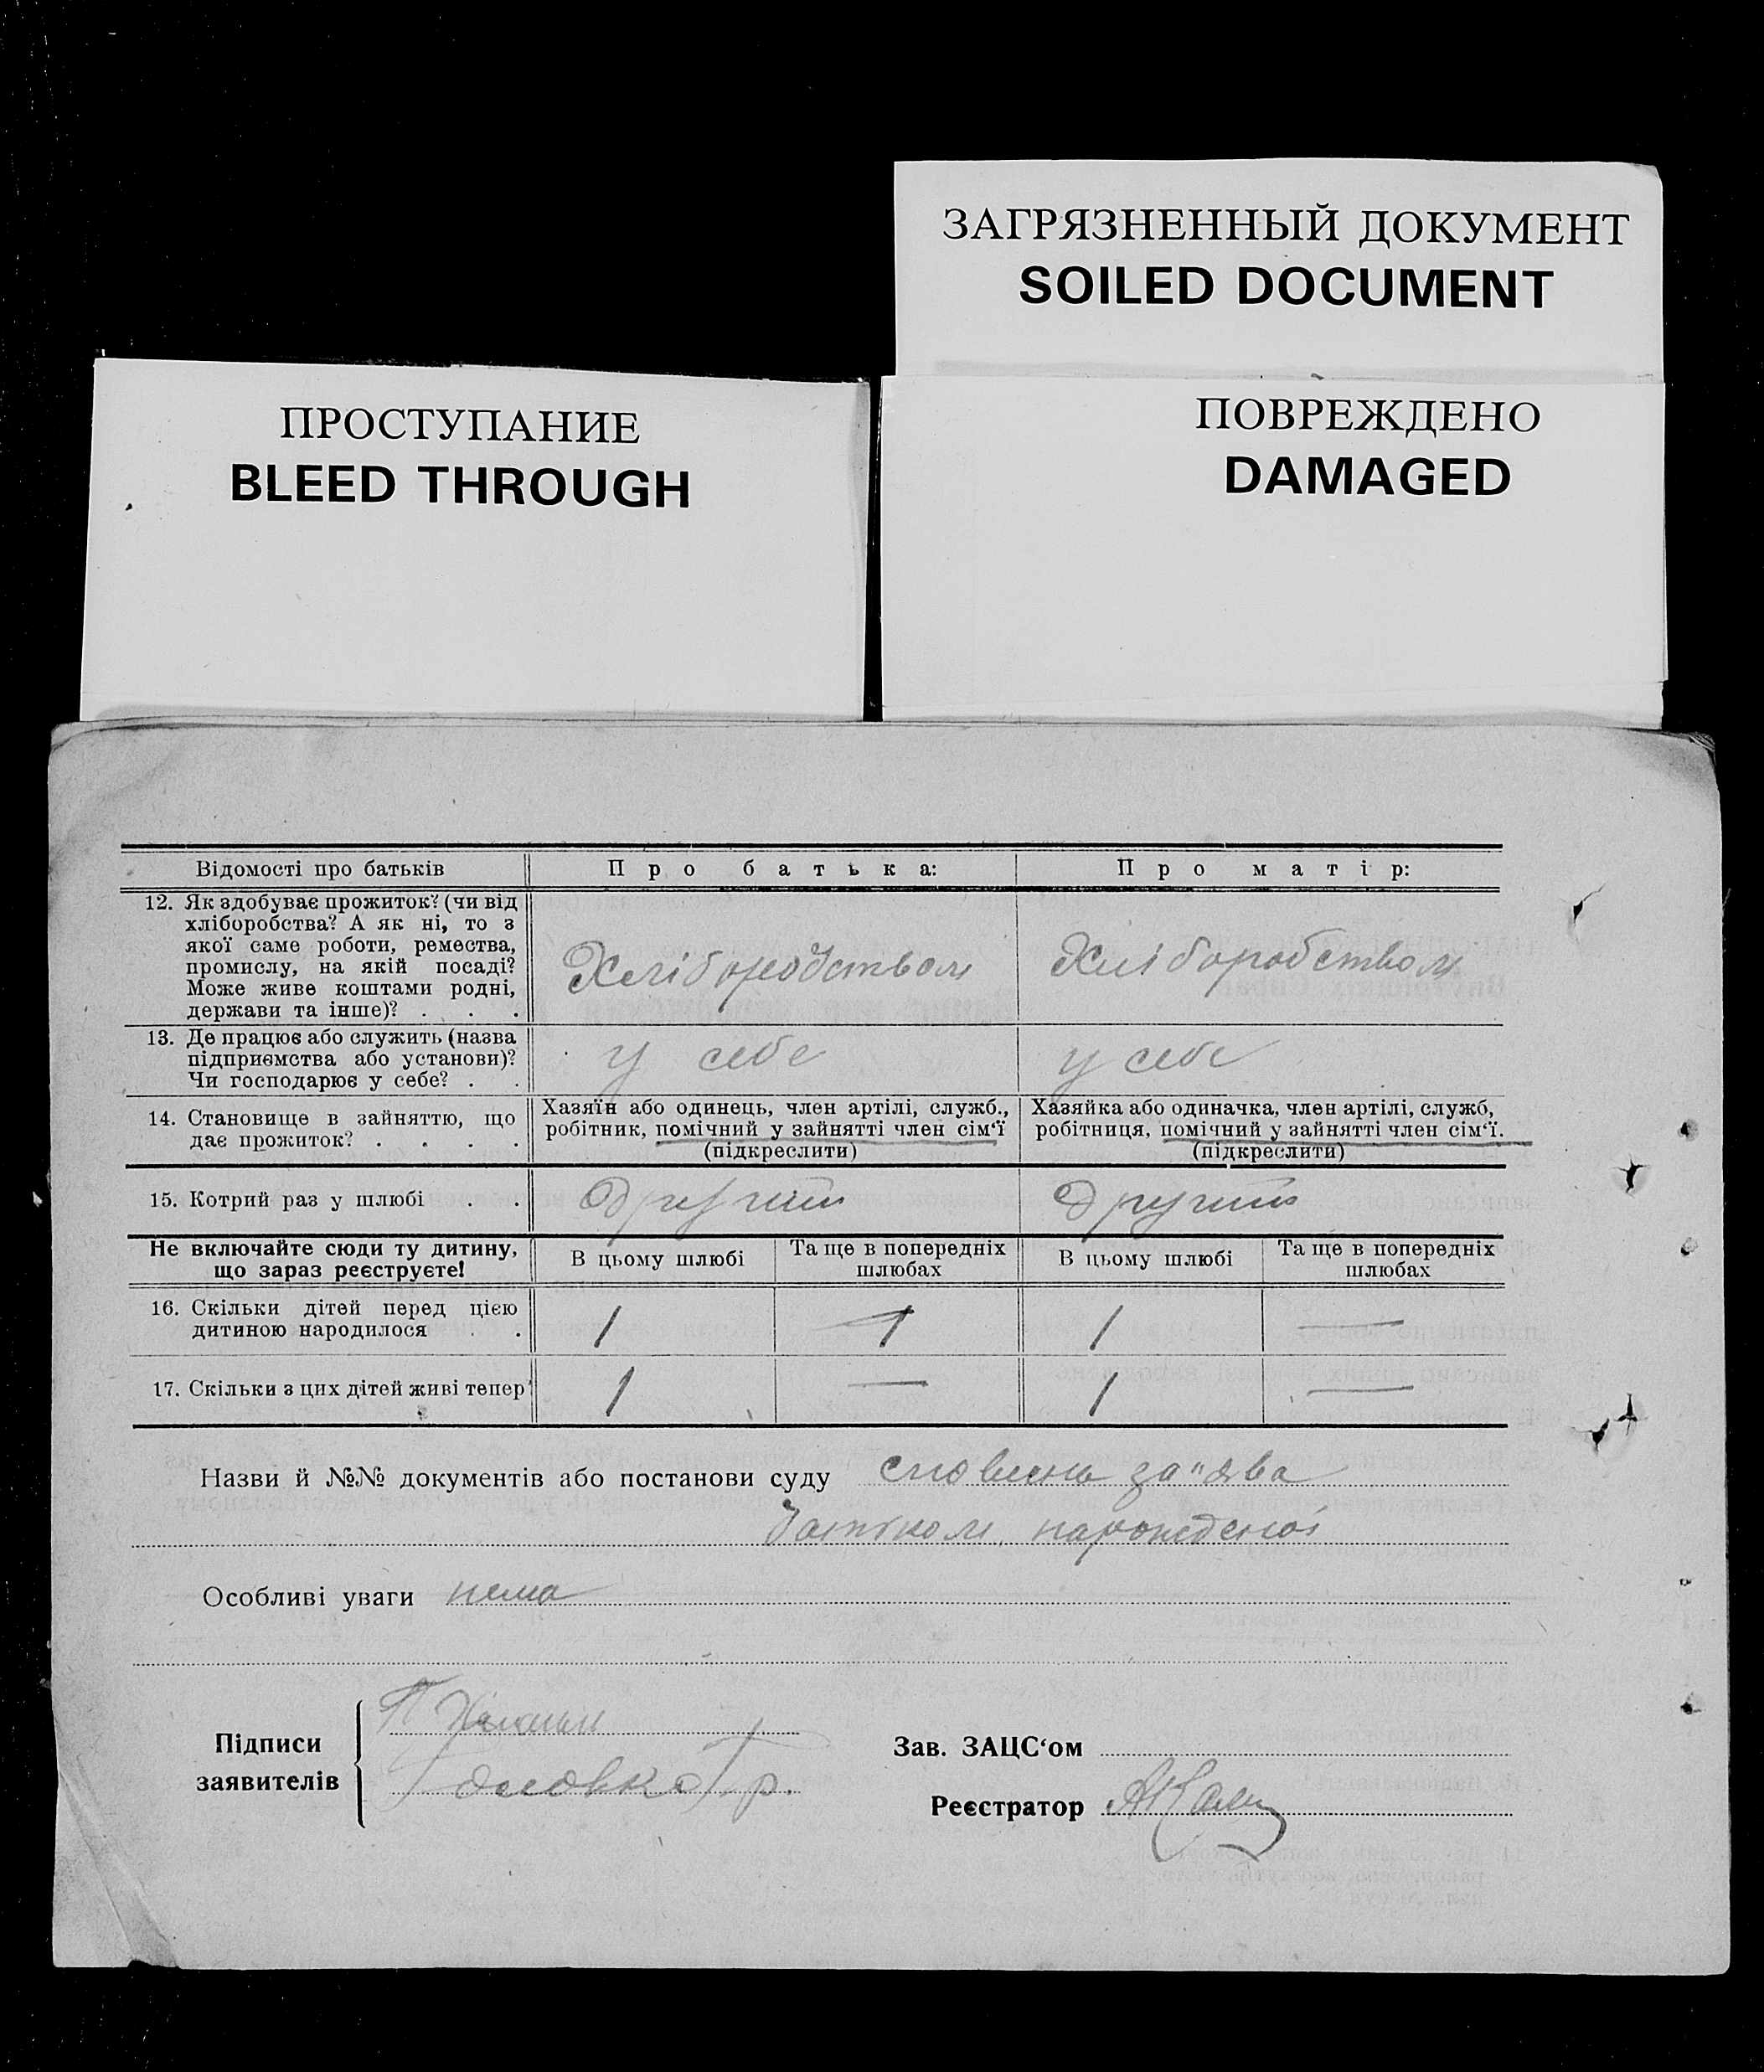 ЗАГРЯЗНЕННЫЙ ДОКУМЕНТ
SOILED DOCUMENT
ПРОСТУПАНИЕ
BLEED THROUGH
ПОВРЕЖДЕНО
DAMAGED
Відомості про батьків
Про батька:
Про матір:
12. Як здобуває прожиток? (чи від
хліборобства? А як ні, то з
якої саме роботи, ремества,
промислу, на якій посаді?
Може живе коштами родні,
держави та інше)? . . .
Хліборобством
Хліборобством
13. Де працює або служить (назва
підприємства або установи)?
Чи господарює у себе? . .
у себе
у себе
14. Становище в зайняттю, що
дає прожиток? . . . .
Хазяїн або одинець, член артілі, служб.,
робітник, помічний у зайнятті член сім'ї
(підкреслити)
Хазяйка або одиначка, член артілі, служб,
робітниця, помічний у зайнятті член сім'ї.
(підкреслити)
15. Котрий раз у шлюбі . .
Другий
Другий
Не включайте сюди ту дитину,
що зараз реєструєте!
В цьому шлюбі
Та ще в попередніх
шлюбах
В цьому шлюбі
Та ще в попередніх
шлюбах
16. Скільки дітей перед цією
дитиною народилося . .
1
1
1
—
17. Скільки з цих дітей живі тепер
1
—
1
—
Назви й №№ документів або постанови суду словесна за"ява
батьком нарожденої
Особливі уваги нема
Підписи
заявителів
П
Головко Гр.
Зав. ЗАЦС'ом
Реєстратор